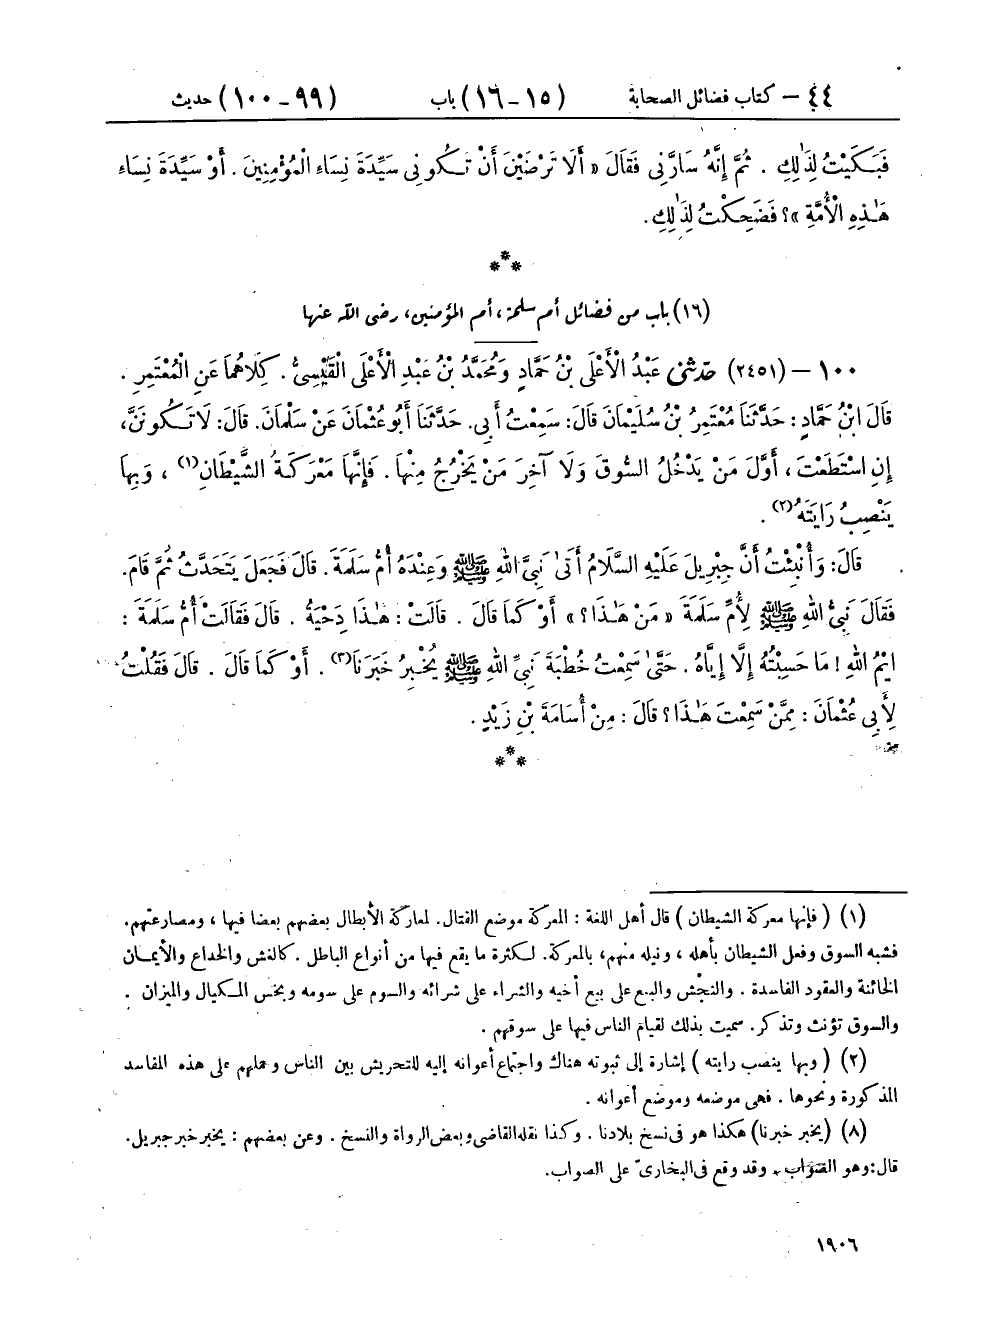 ٤٤ – كتاب فضائل الصحابة (١٥ - ١٦) باب (٩٩ - ١٠٠) حديث
فَبَكَيْتُ لِذَٰلِكِ . ثُمَّ إِنَّهُ سَارَّنِي فَقَالَ « أَلَا تَرْضَيْنَ أَنْ تَكُونِي سَيِّدَةَ نِسَاءِ الْمُؤْمِنِينَ . أَوْ سَيِّدَةَ نِسَاءِ
هَٰذِهِ الْأُمَّةِ »؟ فَضَحِكْتُ لِذَٰلِكِ.
***
(١٦) باب من فضائل أم سلمة، أم المؤمنين، رضى الله عنها
١٠٠ – (٢٤٥١) حَدَّثَنِي عَبْدُ الْأَعْلَى بْنُ حَمَّادٍ وَمُحَمَّدُ بْنُ عَبْدِ الْأَعْلَى الْقَيْسِيُّ . كِلَاهُمَا عَنِ الْمُعْتَمِرِ .
قَالَ ابْنُ حَمَّادٍ : حَدَّثَنَا مُعْتَمِرُ بْنُ سُلَيْمَانَ قَالَ: سَمِعْتُ أَبِي. حَدَّثَنَا أَبُو عُثْمَانَ عَنْ سَلْمَانَ. قَالَ: لَا تَكُونَنَّ،
إِنِ اسْتَطَعْتَ ، أَوَّلَ مَنْ يَدْخُلُ السُّوقَ وَلَا آخِرَ مَنْ يَخْرُجُ مِنْهَا . فَإِنَّهَا مَعْرَكَةُ الشَّيْطَانِ(١) ، وَبِهَا
يَنْصِبُ رَايَتَهُ(٢) .
قَالَ: وَأُنْبِئْتُ أَنَّ جِبْرِيلَ عَلَيْهِ السَّلَامُ أَتَىٰ نَبِيَّ اللهِ ﷺ وَعِنْدَهُ أُمُّ سَلَمَةَ . قَالَ فَجَعَلَ يَتَحَدَّثُ ثُمَّ قَامَ.
فَقَالَ نَبِيُّ اللهِ ﷺ لِأُمِّ سَلَمَةَ « مَنْ هَٰذَا ؟ » أَوْ كَمَا قَالَ . قَالَتْ : هَٰذَا دِحْيَةُ . قَالَ فَقَالَتْ أُمُّ سَلَمَةَ :
ايْمُ اللهِ ! مَا حَسِبْتُهُ إِلَّا إِيَّاهُ . حَتَّىٰ سَمِعْتُ خُطْبَةَ نَبِيِّ اللهِ ﷺ يُخْبِرُ خَبَرَنَا(٣) . أَوْ كَمَا قَالَ . قَالَ فَقُلْتُ
لِأَبِي عُثْمَانَ : مِمَّنْ سَمِعْتَ هَٰذَا ؟ قَالَ : مِنْ أُسَامَةَ بْنِ زَيْدٍ .
***
(١) ( فإنها معركة الشيطان ) قال أهل اللغة : المعركة موضع القتال. لمعاركة الأبطال بعضهم بعضا فيها ، ومصارعتهم.
فشبه السوق وفعل الشيطان بأهله ، ونيله منهم، بالمعركة. لكثرة ما يقع فيها من أنواع الباطل . كالغش والخداع والأيمان
الخائنة والعقود الفاسدة . والنجْش والبيع على بيع أخيه والشراء على شرائه والسوم على سومه وبخس المكيال والميزان .
والسوق تؤنث وتذكر. سميت بذلك لقيام الناس فيها على سوقهم .
(٢) ( وبها ينصب رايته ) إشارة إلى ثبوته هناك واجتماع أعوانه إليه للتحريش بين الناس وحملهم على هذه المفاسد
المذكورة ونحوها . فهى موضعه وموضع أعوانه .
(٨) (يخبر خبرنا) هكذا هو فى نسخ بلادنا . وكذا نقله القاضى وبعض الرواة والنسخ . وعن بعضهم : يخبر خبر جبريل.
قال: وهو الصواب. وقد وقع فى البخارىّ على الصواب.
١٩٠٦